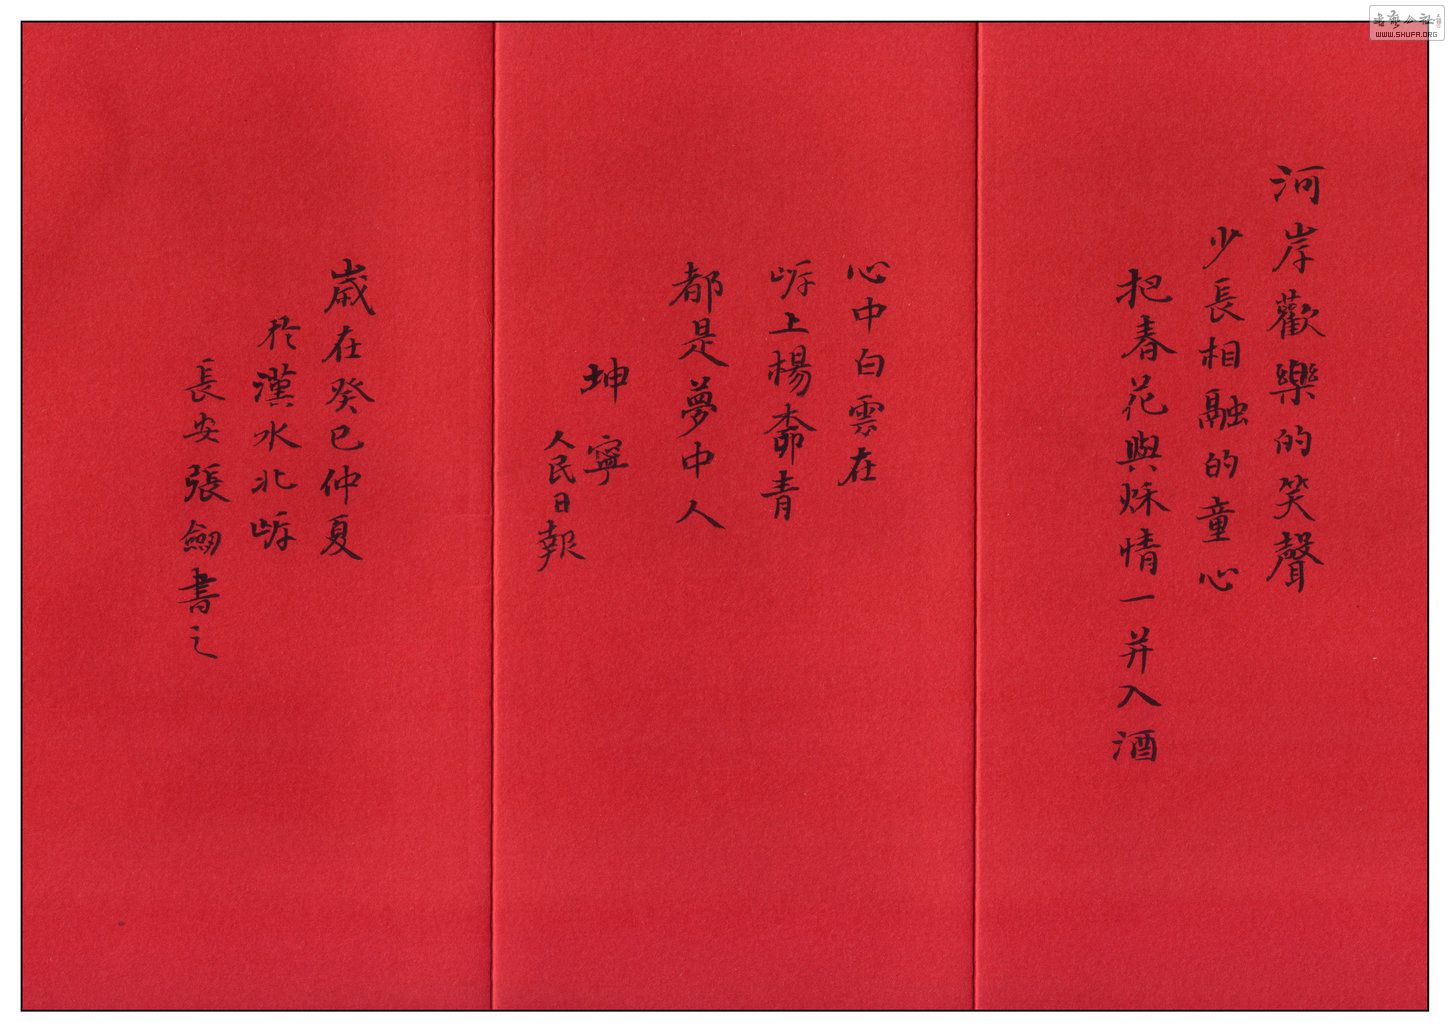 河岸歡樂的笑聲
少長相融的童心
把春花與秌情一并入酒
心中白雲在
岸上楊桺青
都是夢中人
坤寧
人民日報
歲在癸巳仲夏
於漢水北岸
長安張劒書之
WWW.SHUFA.ORG